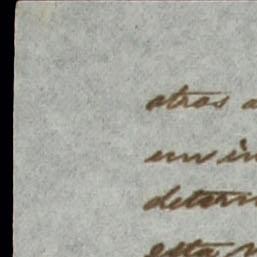 otras a
un in
determ
esta